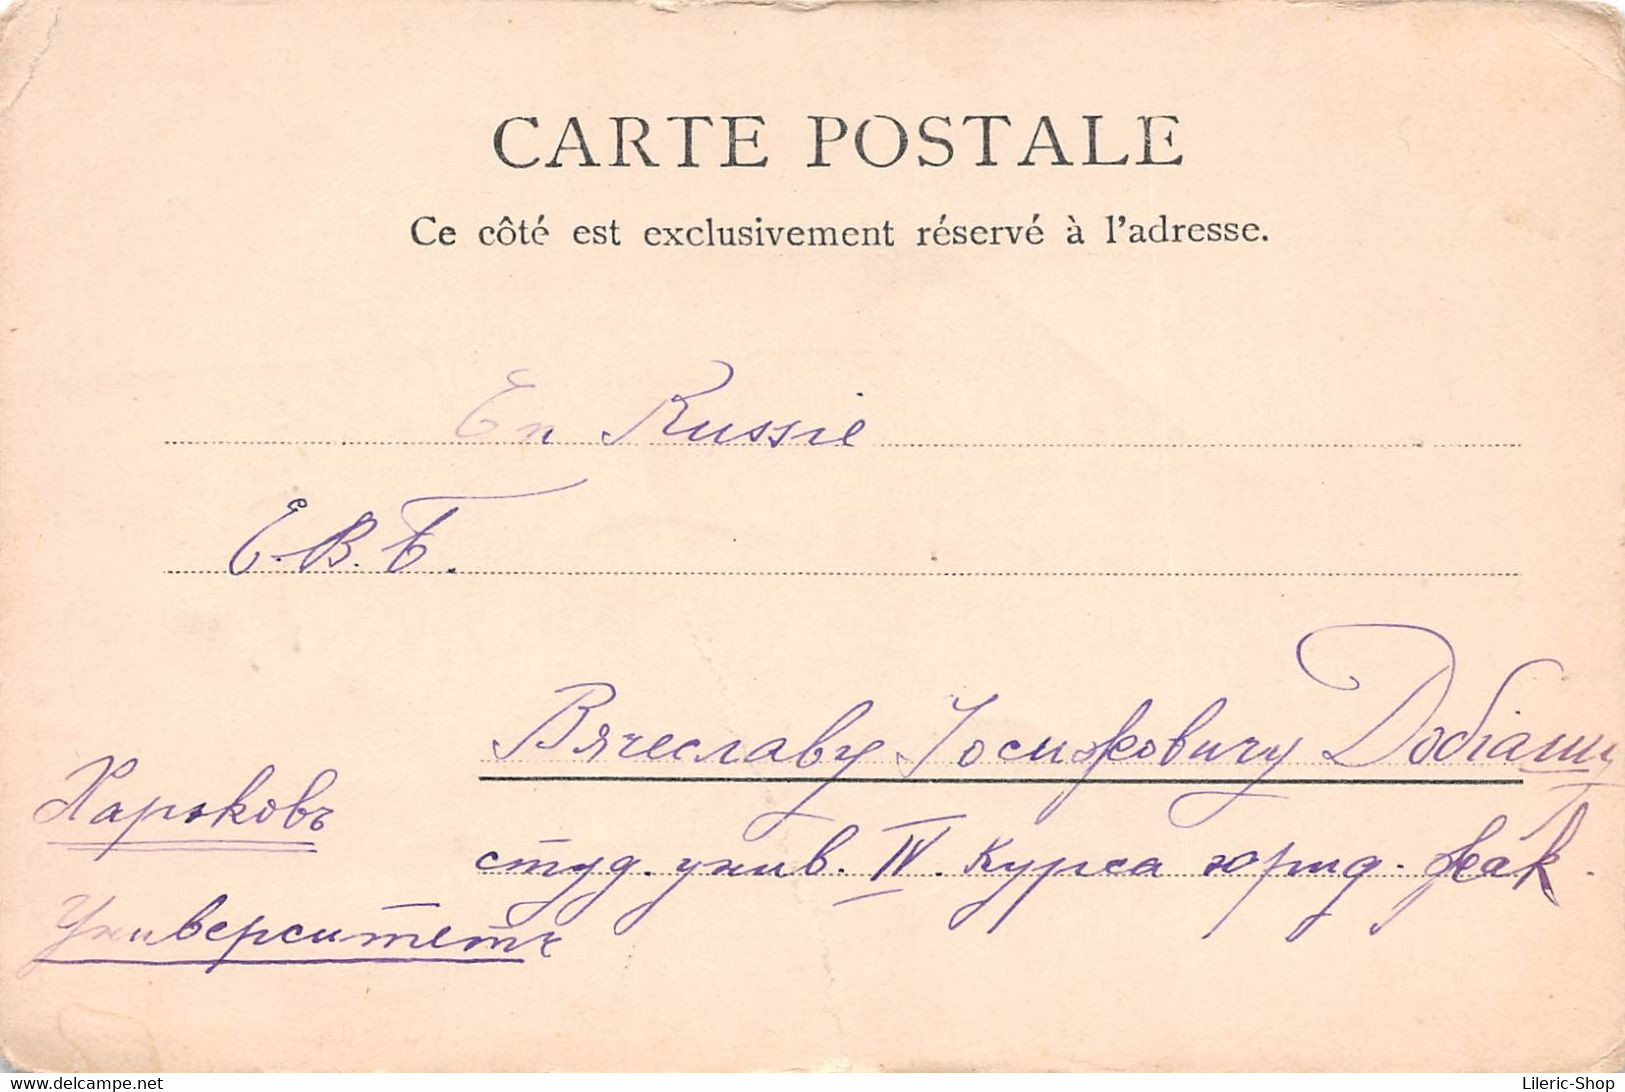 CARTE POSTALE
Ce côté est exclusivement réservé à l'adresse.
En Russie
Е. В. Б.
Вячеславу Іосифовичу Добіашу
студ. унив. IV. курса юрид. фак.
Харьковъ
Университетъ
https://www.delcampe.net
Lileric-Shop